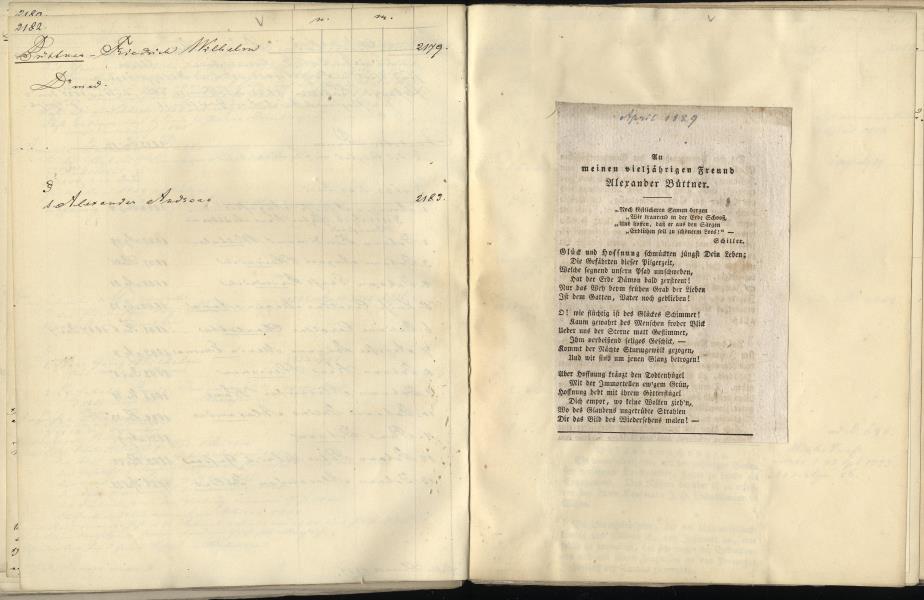 2180.
2182.
n. m.
Büttner - Friedrich Wilhelm 2179.
Dr med.
1 Alexander Andreas 2183.
April 1829
An
meinen vieljährigen Freund
Alexander Büttner.
„Noch köstlicheren Samen bergen
„Wir traurend in der Erde Schooß,
„Und hoffen, daß er aus den Särgen
„Erblühen soll zu schönerm Loos!“ —
Schiller.
Glück und Hoffnung schmückten jüngst Dein Leben;
Die Gefährten dieser Pilgerzeit,
Welche segnend unsern Pfad umschweben,
Hat der Erde Dämon bald zerstreut!
Nur das Weh beym frühen Grab der Lieben
Ist dem Gatten, Vater noch geblieben!
O! wie flüchtig ist des Glückes Schimmer!
Kaum gewahrt des Menschen froher Blick
Ueber uns der Sterne matt Geflimmer,
Ihm verheißend seliges Geschick, —
Kommt der Nächte Sturmgewölk gezogen,
Und wir sind um jenen Glanz betrogen!
Aber Hoffnung kränzt den Todtenhügel
Mit der Immortellen ew'gem Grün,
Hoffnung hebt mit ihrem Götterflügel
Dich empor, wo keine Wolken zieh'n,
Wo des Glaubens ungetrübte Strahlen
Dir das Bild des Wiedersehens malen! —